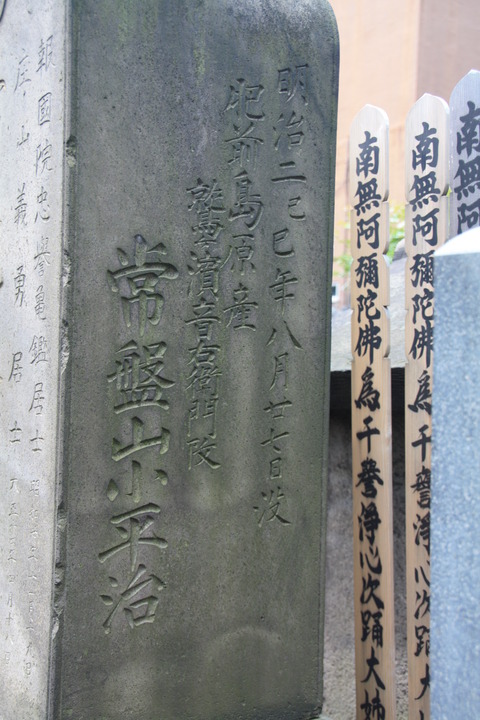 明治二己巳年八月廿七日没
肥前島原産
濱音右衛門改
常盤山小平治
報國院忠譽亀鑑居士
庄山義勇居士
南無阿彌陀佛為千譽淨心次踊大姉
南無阿彌陀佛為千譽淨心次踊大
南無